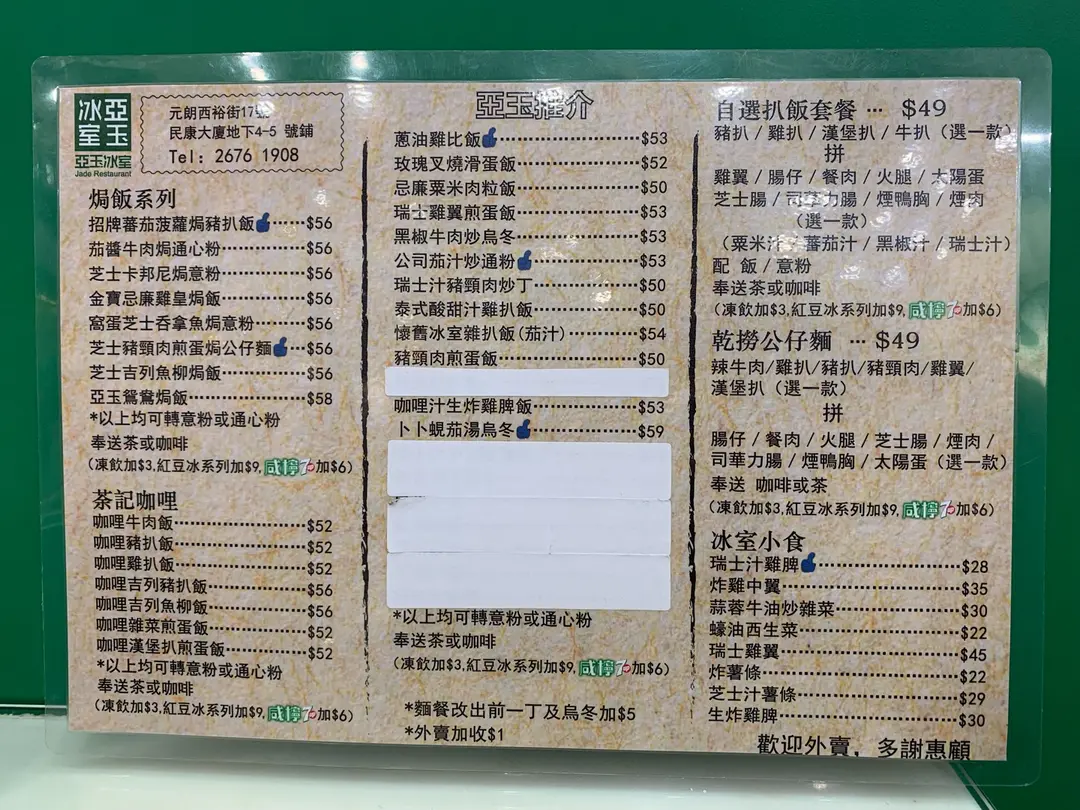 冰亞
室玉
亞玉冰室
Jade Restaurant
元朗西裕街17號
民康大廈地下4-5 號鋪
Tel: 2676 1908
焗飯系列
招牌蕃茄菠蘿焗豬扒飯 $56
茄醬牛肉焗通心粉 $56
芝士卡邦尼焗意粉 $56
金寶忌廉雞皇焗飯 $56
窩蛋芝士吞拿魚焗意粉 $56
芝士豬頸肉煎蛋焗公仔麵 $56
芝士吉列魚柳焗飯 $56
亞玉鴛鴦焗飯 $58
*以上均可轉意粉或通心粉
奉送茶或咖啡
(凍飲加$3,紅豆冰系列加$9,咸檸7加$6)
茶記咖哩
咖哩牛肉飯 $52
咖哩豬扒飯 $52
咖哩雞扒飯 $52
咖哩吉列豬扒飯 $56
咖哩吉列魚柳飯 $56
咖哩雜菜煎蛋飯 $52
咖哩漢堡扒煎蛋飯 $52
*以上均可轉意粉或通心粉
奉送茶或咖啡
(凍飲加$3,紅豆冰系列加$9,咸檸7加$6)
亞玉推介
蔥油雞比飯 $53
玫瑰叉燒滑蛋飯 $52
忌廉粟米肉粒飯 $50
瑞士雞翼煎蛋飯 $53
黑椒牛肉炒烏冬 $53
公司茄汁炒通粉 $53
瑞士汁豬頸肉炒丁 $50
泰式酸甜汁雞扒飯 $50
懷舊冰室雜扒飯(茄汁) $54
豬頸肉煎蛋飯 $50
咖哩汁生炸雞脾飯 $53
卜卜蜆茄湯烏冬 $59
*以上均可轉意粉或通心粉
奉送茶或咖啡
(凍飲加$3,紅豆冰系列加$9,咸檸7加$6)
*麵餐改出前一丁及烏冬加$5
*外賣加收$1
自選扒飯套餐 … $49
豬扒 / 雞扒 / 漢堡扒 / 牛扒 (選一款)
拼
雞翼 / 腸仔 / 餐肉 / 火腿 / 太陽蛋
芝士腸 / 司華力腸 / 煙鴨胸 / 煙肉
(選一款)
(粟米汁 / 蕃茄汁 / 黑椒汁 / 瑞士汁)
配 飯 / 意粉
奉送茶或咖啡
(凍飲加$3,紅豆冰系列加$9,咸檸7加$6)
乾撈公仔麵 … $49
辣牛肉/雞扒/豬扒/豬頸肉/雞翼/
漢堡扒 (選一款)
拼
腸仔 / 餐肉 / 火腿 / 芝士腸 / 煙肉 /
司華力腸 / 煙鴨胸 / 太陽蛋 (選一款)
奉送 咖啡或茶
(凍飲加$3,紅豆冰系列加$9,咸檸7加$6)
冰室小食
瑞士汁雞脾 $28
炸雞中翼 $35
蒜蓉牛油炒雜菜 $30
蠔油西生菜 $22
瑞士雞翼 $45
炸薯條 $22
芝士汁薯條 $29
生炸雞脾 $30
歡迎外賣，多謝惠顧